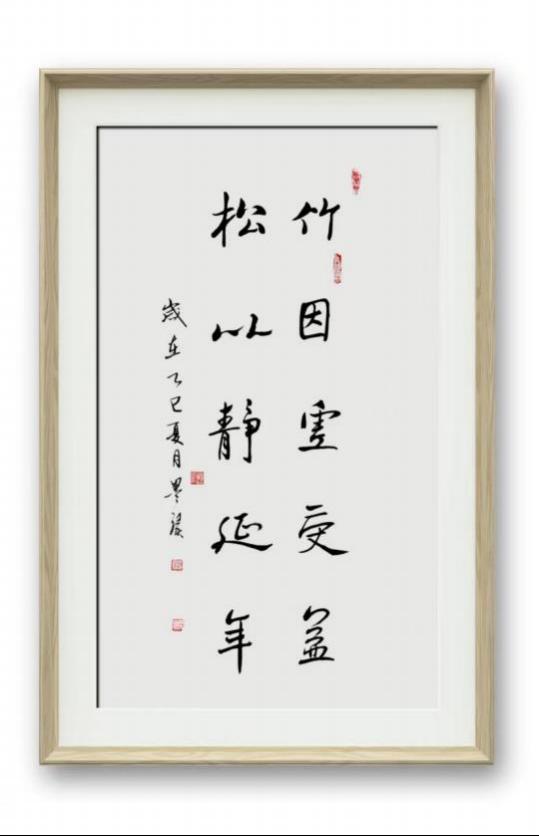 竹因虚受益
松以静延年
岁在乙巳夏月墨